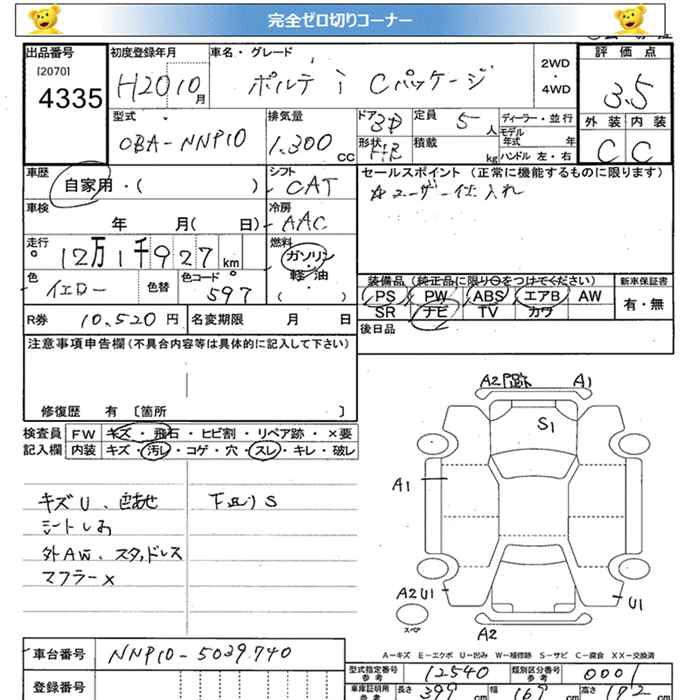 完全ゼロ切りコーナー
出品番号 初度登録年月 車名・グレード 2WD・4WD 評価点
[2070]
4335 H20 10月 ポルテ i Cパッケージ 3.5
型式 排気量 ドア 3D 定員 5人 ディーラー・並行 外装 内装
CBA-NNP10 1.300 CC 形状 H/B 積載 kg モデル年式 年 ハンドル 左・右 C C
車歴 自家用・( ) シフト CAT セールスポイント (正常に機能するものに限ります)
車検 年 月( 日) 冷房 AAC ☆ユーザー仕入れ
走行 12万1千927km 燃料 ガソリン・軽油 ( )
色 イエロー 色替 色コード 597 装備品 (純正品に限り○をつけてください) 新車保証書
PS PW ABS エアB AW 有・無
SR ナビ TV カワ
R券 10,520円 名変期限 月 日 後日品
注意事項申告欄(不具合内容等は具体的に記入して下さい)
修復歴 有 〔箇所 〕
検査員 FW キズ・飛石・ヒビ割・リペア跡・×要
記入欄 内装 キズ・汚レ・コゲ・穴・スレ・キレ・破レ
A2 A1
S1
A1
キズU、色あせ 下廻りS
シートしみ
外AW、スタッドレス
マフラー×
A2U1 U1
スペア
A2
A-キズ E-エクボ U-凹み W-補修跡 S-サビ C-腐食 XX-交換済
車台番号 NNP10-5029740 型式指定番号 参考 12540 類別区分番号 参考 0001
登録番号 車庫証明用 参考 長さ 399 cm 幅 169 cm 高さ 172 cm